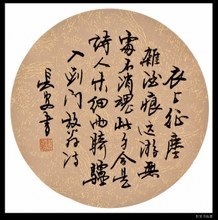 衣上征塵
雜酒痕遠游無
處不消魂此身合是
詩人未細雨騎驢
入劍門放翁詩
書